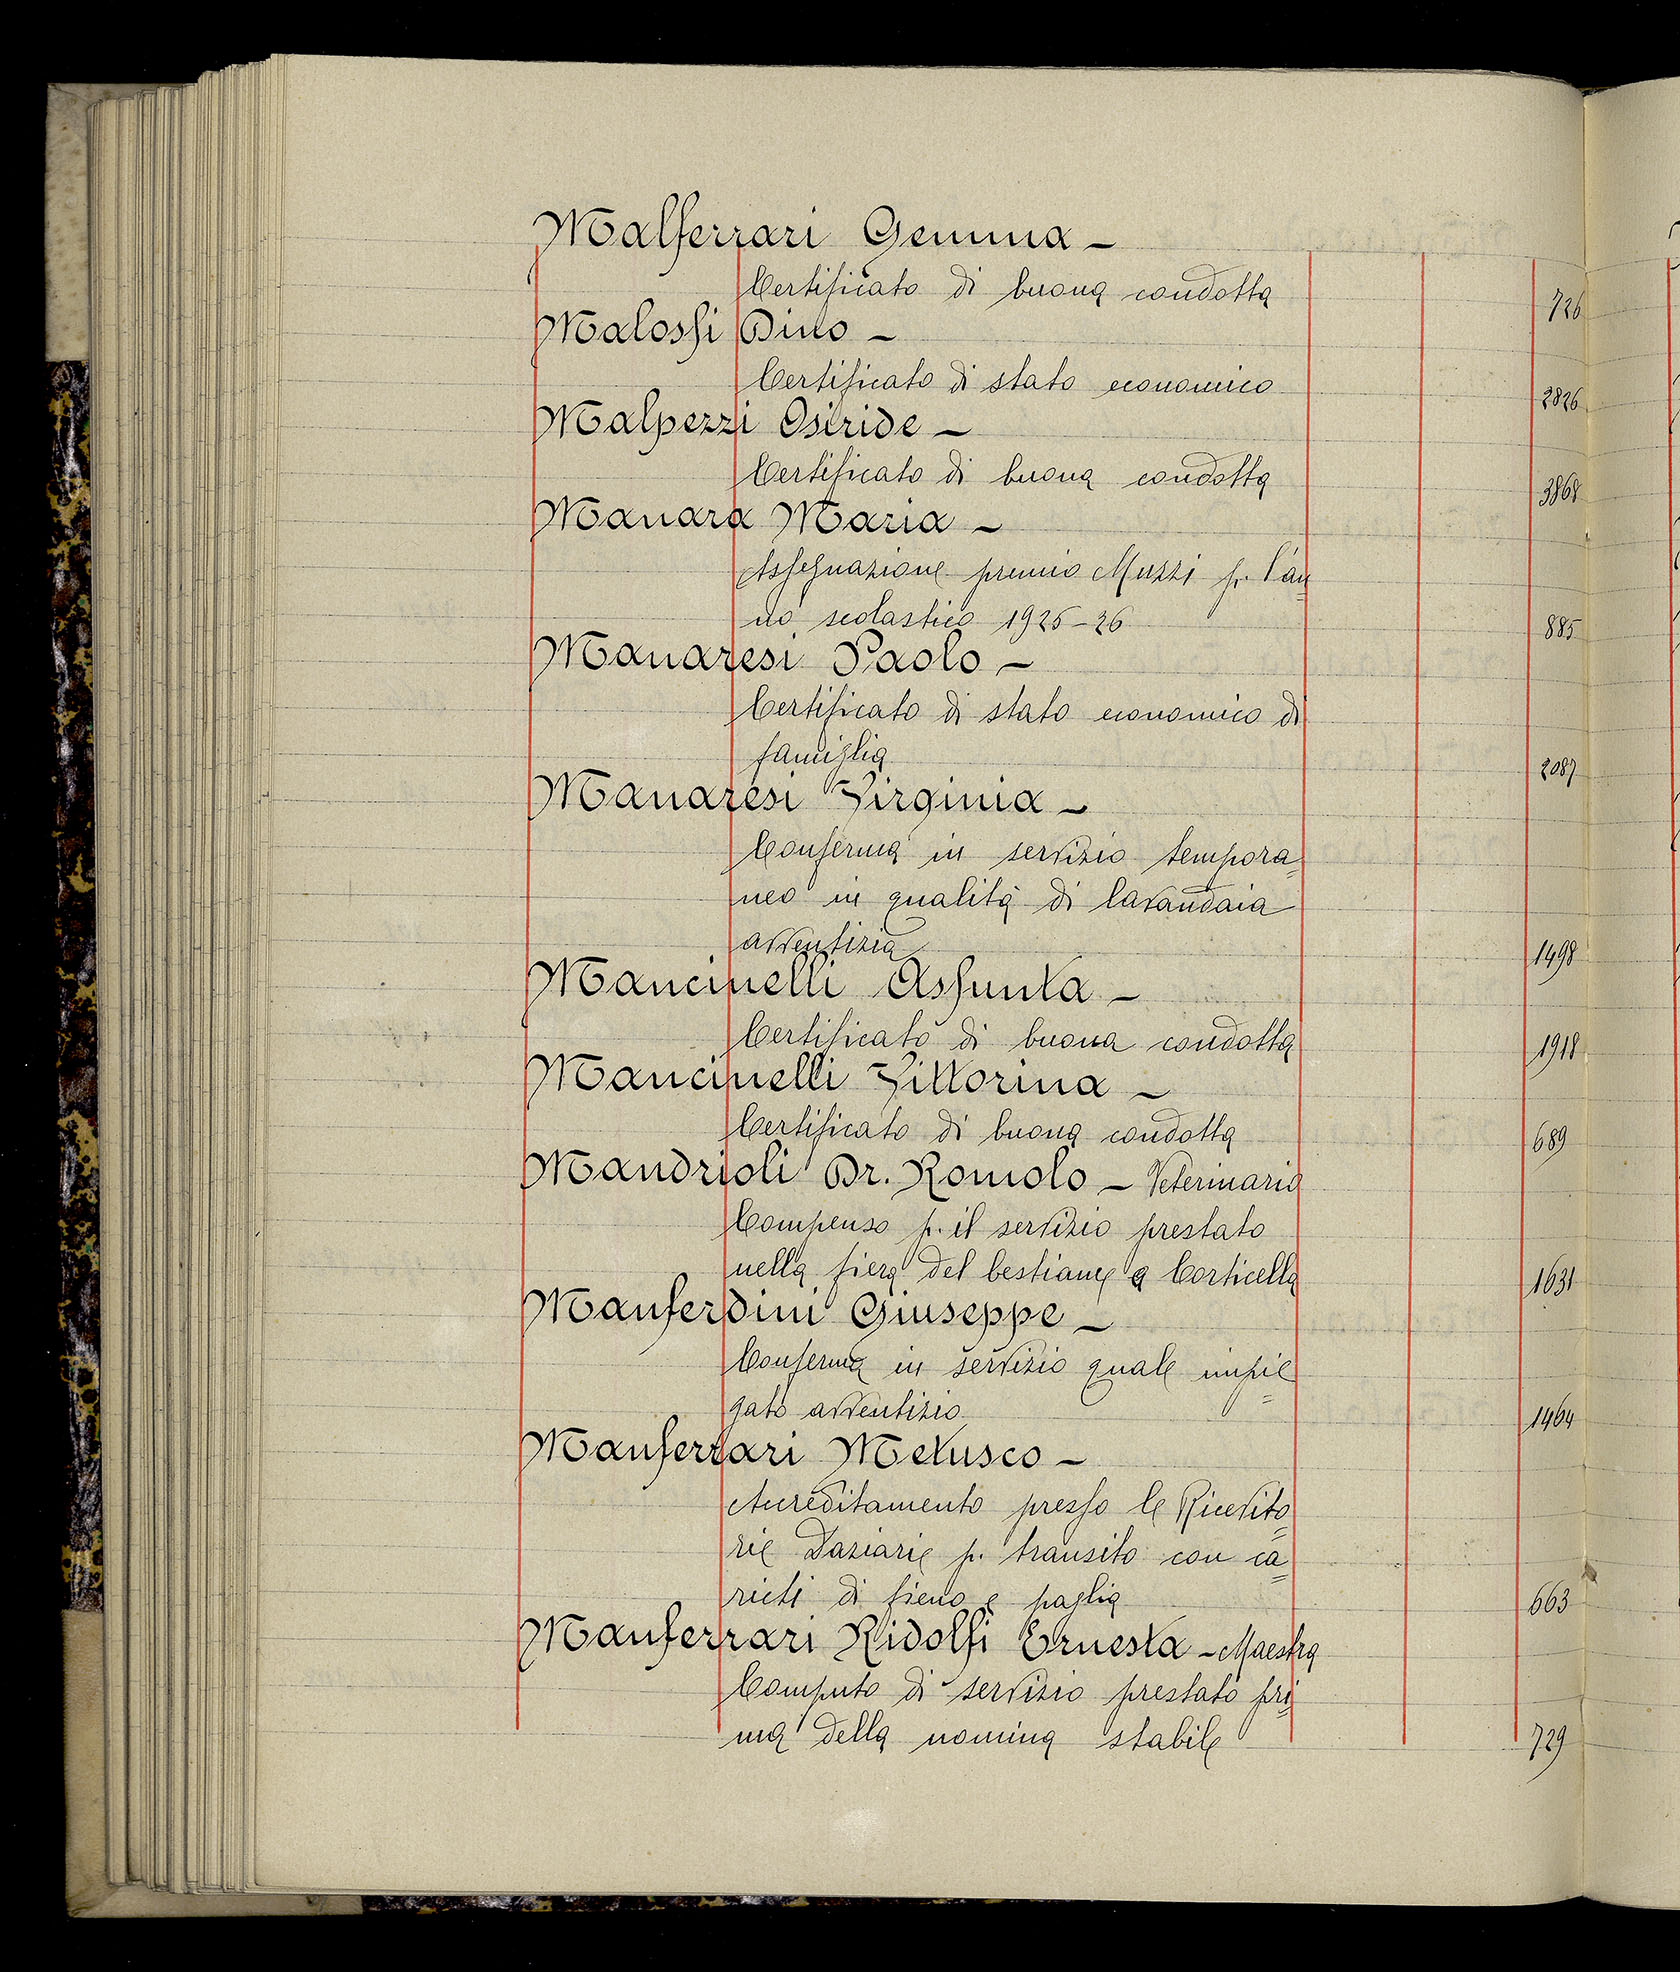 Malferrari Gemma -
Certificato di buona condotta 726
Malossi Dino -
Certificato di stato economico 2826
Malpezzi Osiride -
Certificato di buona condotta 3868
Manara Maria -
Assegnazione premio Muzzi p. l'an=
no scolastico 1925-26 885
Manaresi Paolo -
Certificato di stato economico di
famiglia 2087
Manaresi Virginia -
Conferma in servizio tempora=
neo in qualità di lavandaia
avventizia 1498
Mancinelli Assunta -
Certificato di buona condotta 1918
Mancinelli Vittorina -
Certificato di buona condotta 689
Mandrioli Dr. Romolo - Veterinario
Compenso p. il servizio prestato
nella fiera del bestiame a Corticella 1631
Manferdini Giuseppe -
Conferma in servizio quale impie=
gato avventizio 1464
Manferrari Metusco -
Accreditamento presso le Ricevito=
rie Daziarie p. transito con ca=
richi di fieno e paglia 663
Manferrari Ridolfi Ernesta - Maestra
Computo di servizio prestato pri=
ma della nomina stabile 729